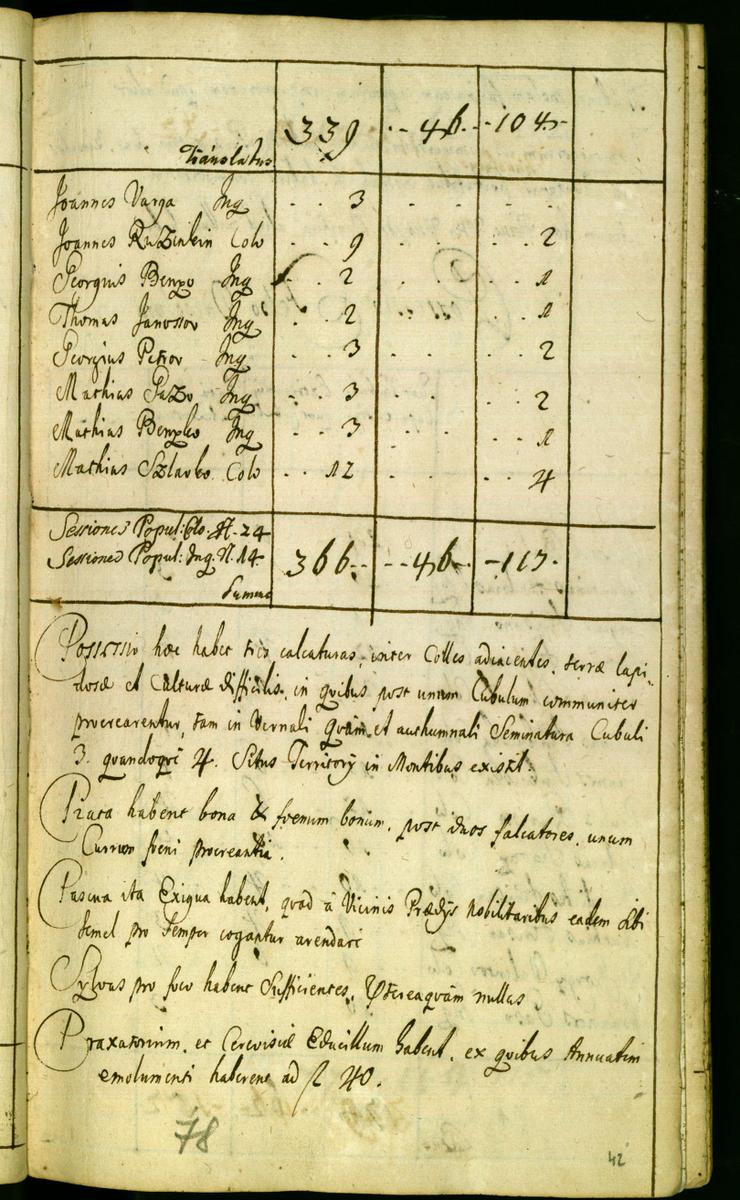 Translatus 339 - - 46 - - 104 -
Joannes Varga Inq . . 3 . . . . .
Joannes Ruzinkin Colo . . 9 . . . . 2
Georgius Benyo Inq . . 2 . . . . 1
Thomas Janossov Inq . . 2 . . . . 1
Georgius Petrov Inq . . 3 . . . . 2
Mathias Pazo Inq . . 3 . . . . 2
Mathias Benyko Inq . . 3 . . . . 1
Mathias Szlavko Colo . . 12 . . . . 4
Sessiones Popul: Clo. N. 24
Sessiones Popul: Inq. N. 14
Sumus 366 - - - 46 - - 117 -
Possessio hæc habet tres calcaturas, inter Colles adiacentes, terræ lapi-
dosæ et Culturæ difficilis, in quibus post unum Cubulum communiter
procrearentur, tam in Vernali quàm et authumnali Seminatura Cubuli
3. quandoque 4. Situs Territorij in Montibus existit.
Prata habent bona & foenum bonum, post duos falcatores, unum
Currum foeni procreantia.
Pascua ita Exigua habent, quod à Vicinis Prædijs nobilitaribus eadem sibi
semel pro semper cogantur arendari
Sylvas pro foco habent Sufficientes, Ptereaquàm nullas
Praxatorium, et Cerevisiæ Educillum habent, ex quibus Annuatim
emolumenti haberent ad f 40.
78
42